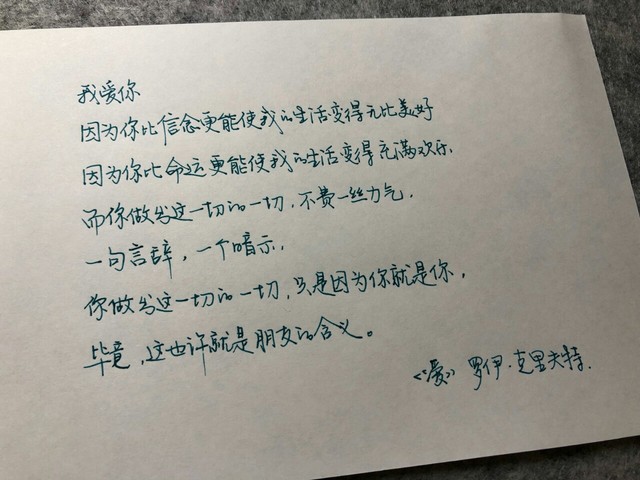 我爱你
因为你比信念更能使我的生活变得无比美好
因为你比命运更能使我的生活变得充满欢乐.
而你做出这一切的一切,不费一丝力气.
一句言辞,一个暗示.
你做出这一切的一切,只是因为你就是你,
毕竟,这也许就是朋友的含义。
《爱》罗伊·克里夫特.